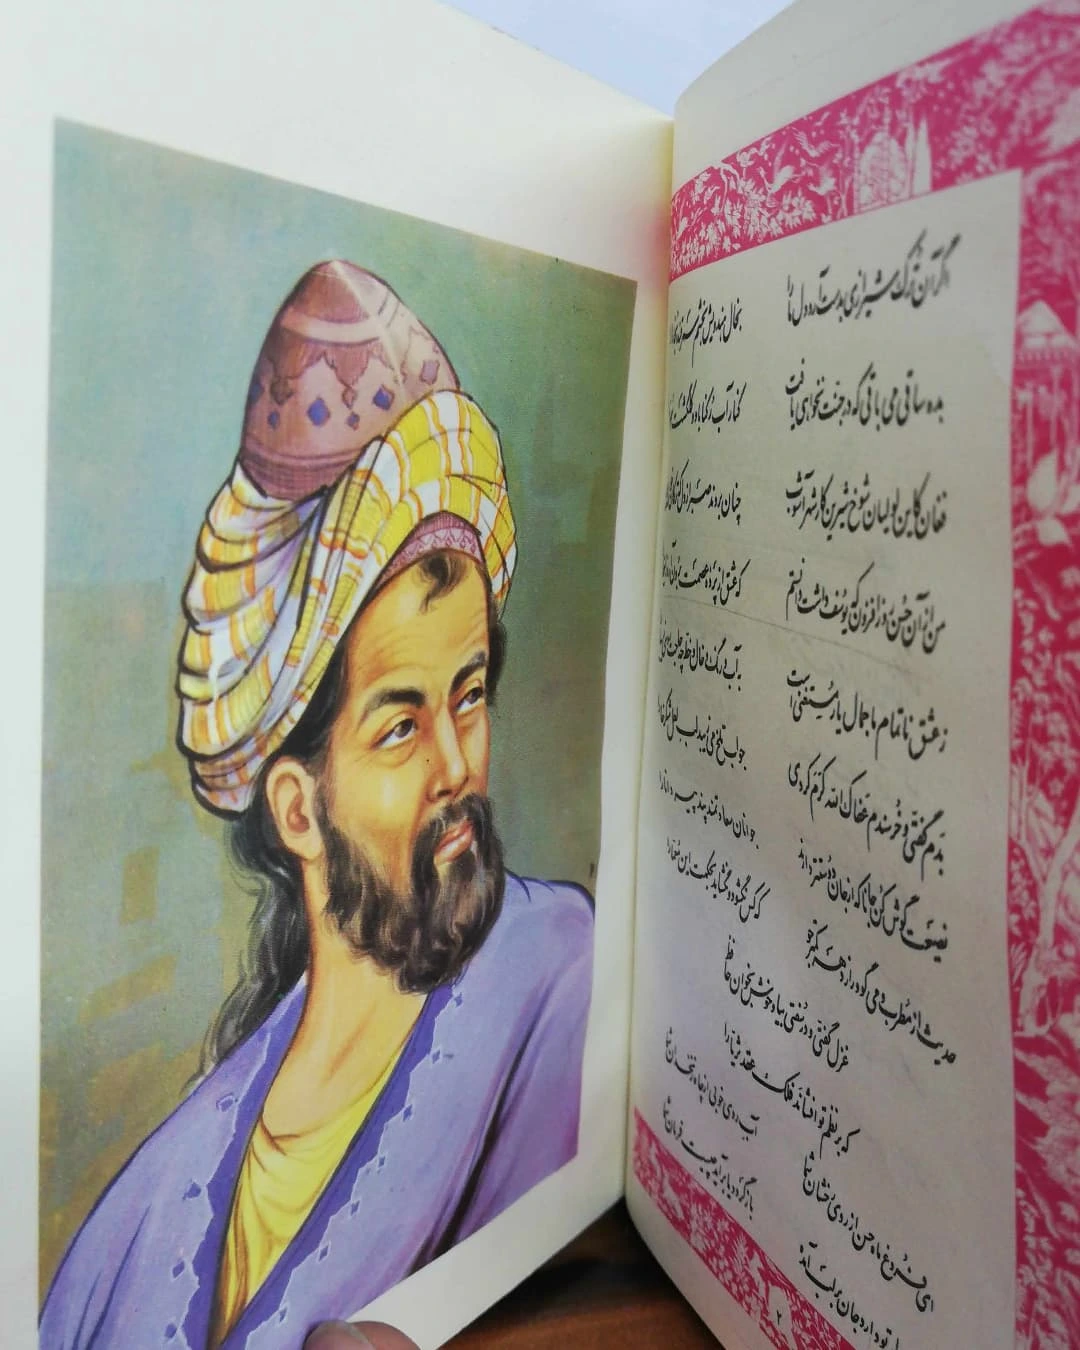 اگر آن ترک شیرازی بدست آرد دل ما را بخال هندویش بخشم سمرقند
بده ساقی می باقی که در جنت نخواهی یافت کنار آب رکناباد و گلگشت
فغان کاین لولیان شوخ شیرین کار شهر آشوب چنان بردند صبر از دل که ترکان
من از آن حسن روز افزون که یوسف داشت دانستم که عشق از پرده عصمت برون آرد
ز عشق ناتمام ما جمال یار مستغنی است به آب و رنگ و خال و خط چه حاجت روی
بدم گفتی و خرسندم عفاک الله کرم کردی جواب تلخ می زیبد لب لعل شکرخا را
نصیحت گوش کن جانا که از جان دوستتر دارند جوانان سعادتمند پند پیر دانا را
حدیث از مطرب و می گو و راز دهر کمتر جو که کس نگشود و نگشاید بحکمت این معما را
غزل گفتی و در سفتی بیا و خوش بخوان حافظ
که بر نظم تو افشاند فلک عقد ثریا را
ای فروغ ماه حسن از روی رخشان شما آب روی خوبی از چاه زنخدان شما
تو دارد جان بر لب آمده باز گردد یا برآید چیست فرمان شما
۲